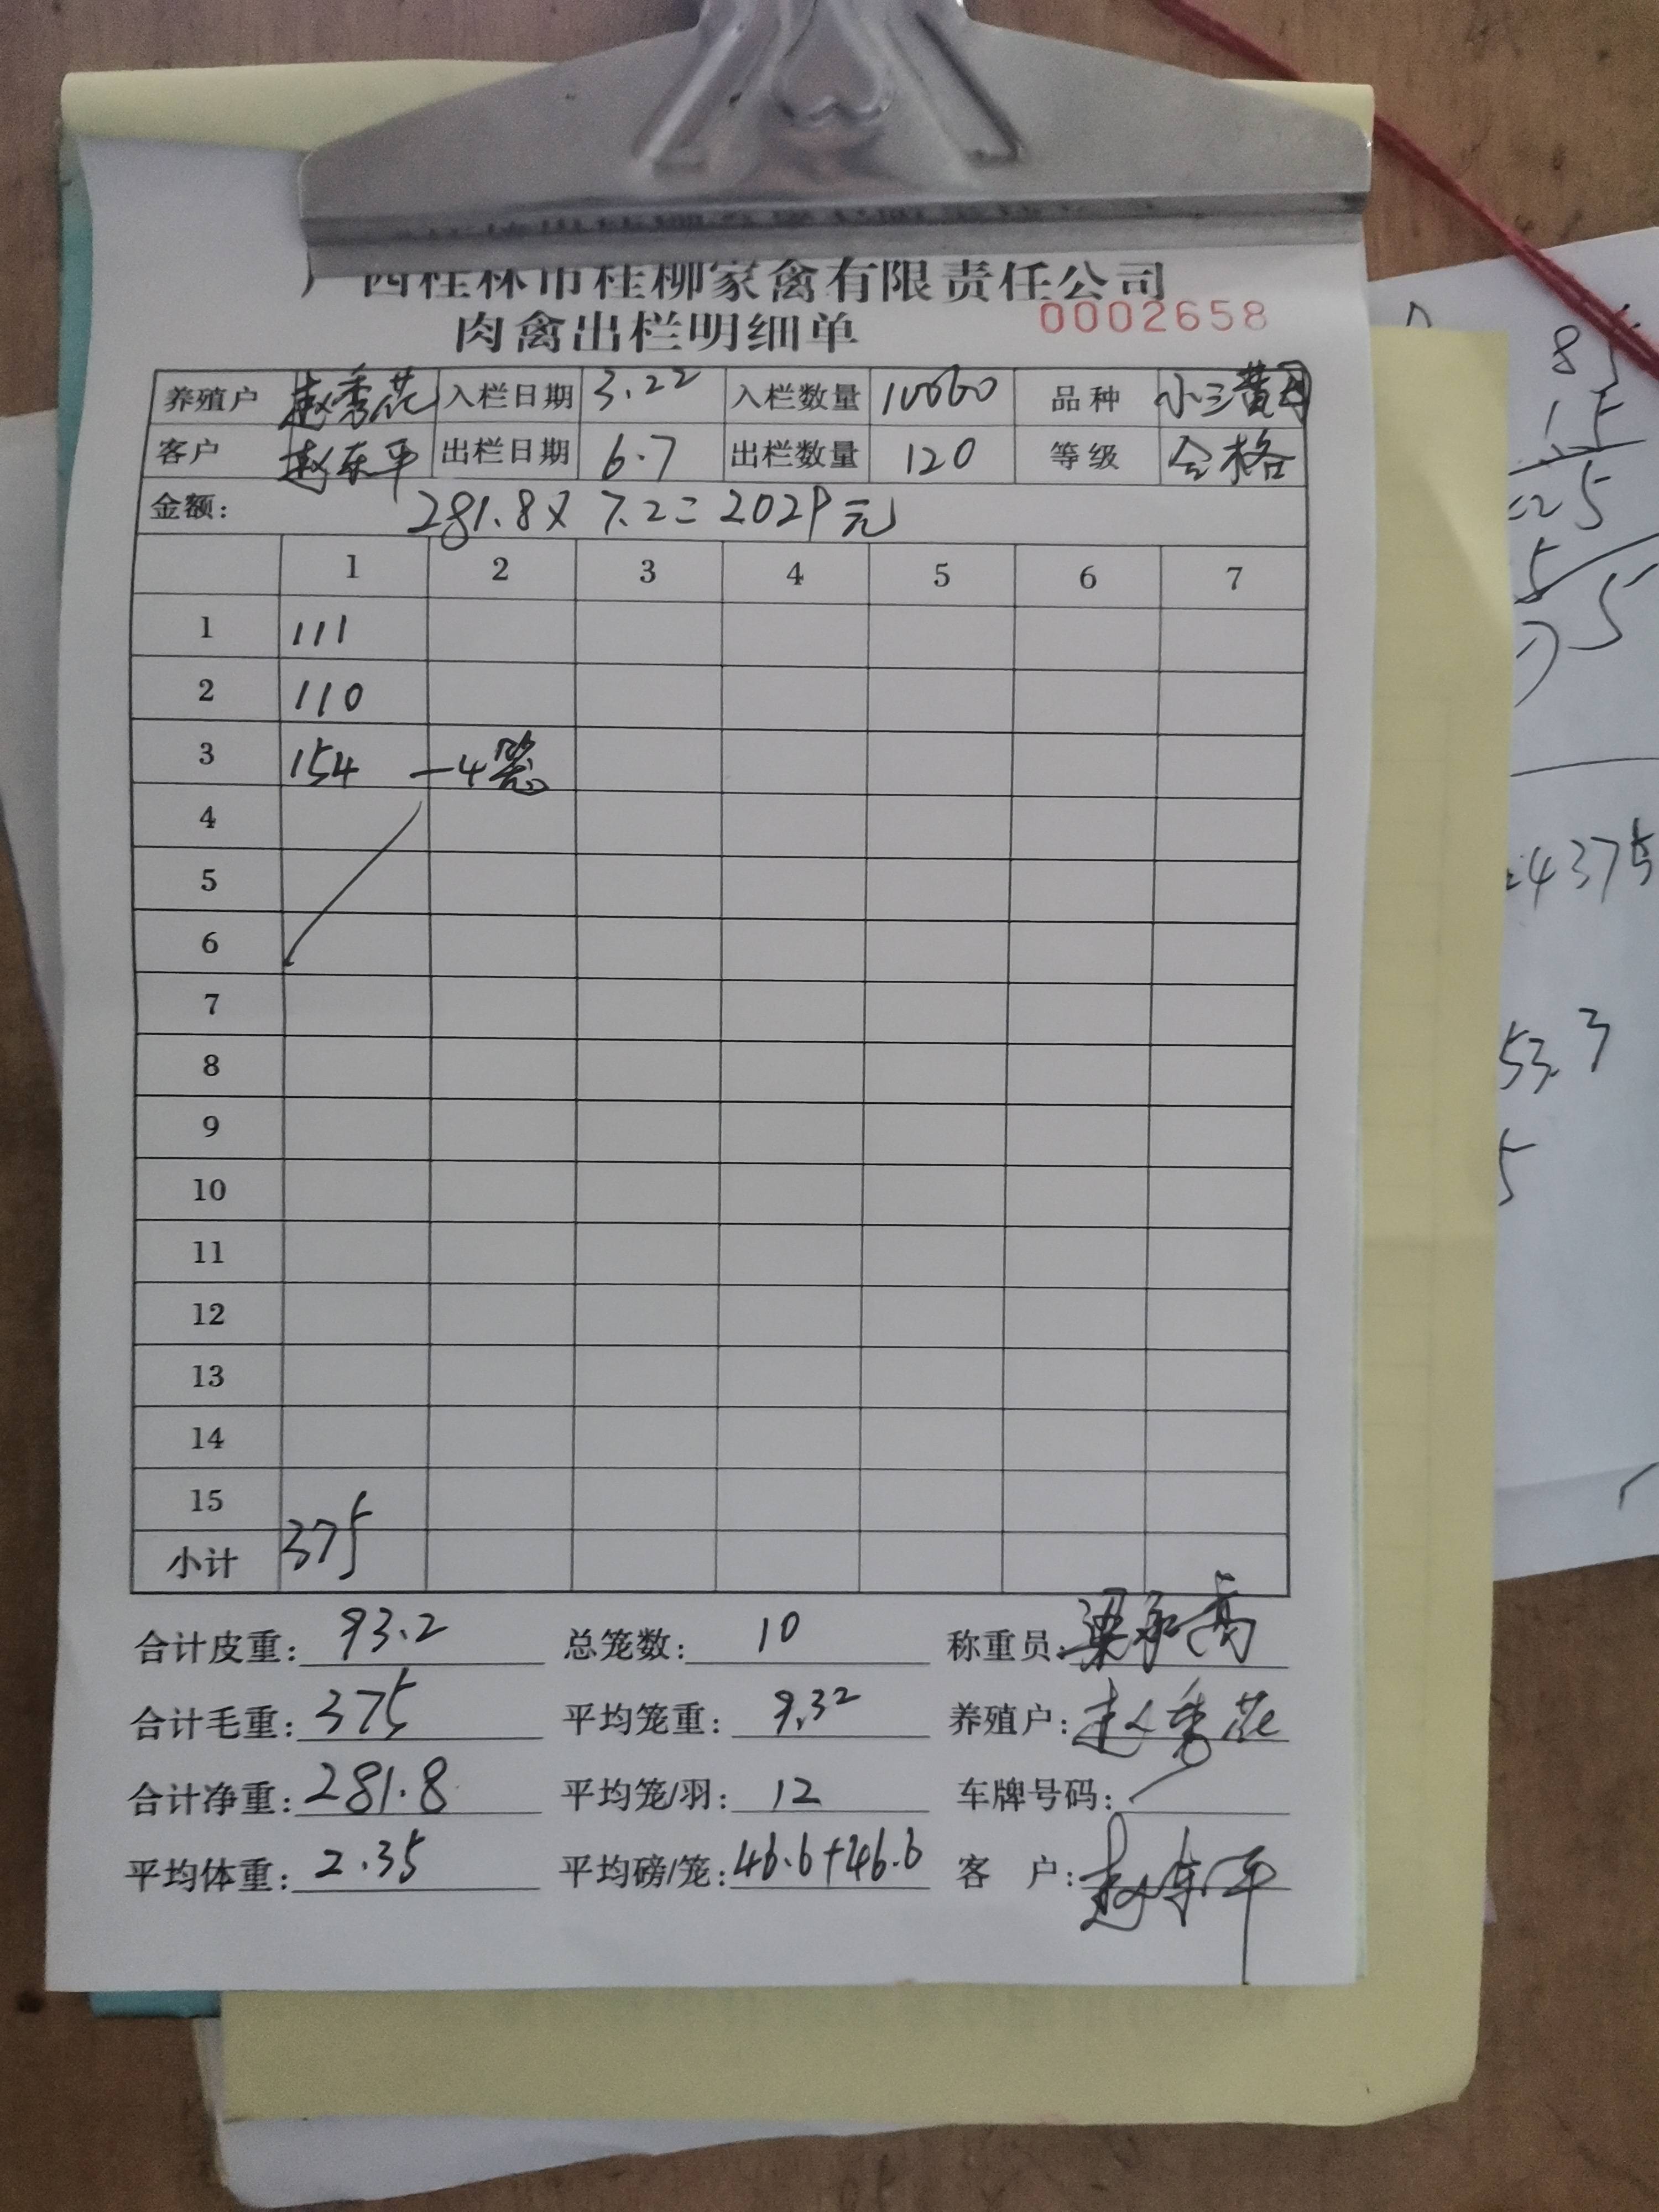 广西桂林市桂柳家禽有限责任公司
肉禽出栏明细单 0002658
养殖户 赵秀花 入栏日期 3.22 入栏数量 10060 品种 小三黄母
客户 赵东平 出栏日期 6.7 出栏数量 120 等级 合格
金额: 281.8×7.2=2029元
1 2 3 4 5 6 7
1 111
2 110
3 154 —4笼
4
5
6
7
8
9
10
11
12
13
14
15
小计 375
合计皮重: 93.2 总笼数: 10 称重员:
合计毛重: 375 平均笼重: 9.32 养殖户: 赵秀花
合计净重: 281.8 平均笼/羽: 12 车牌号码:
平均体重: 2.35 平均磅/笼: 46.6+46.6 客 户: 赵东平
4375
53.3
5